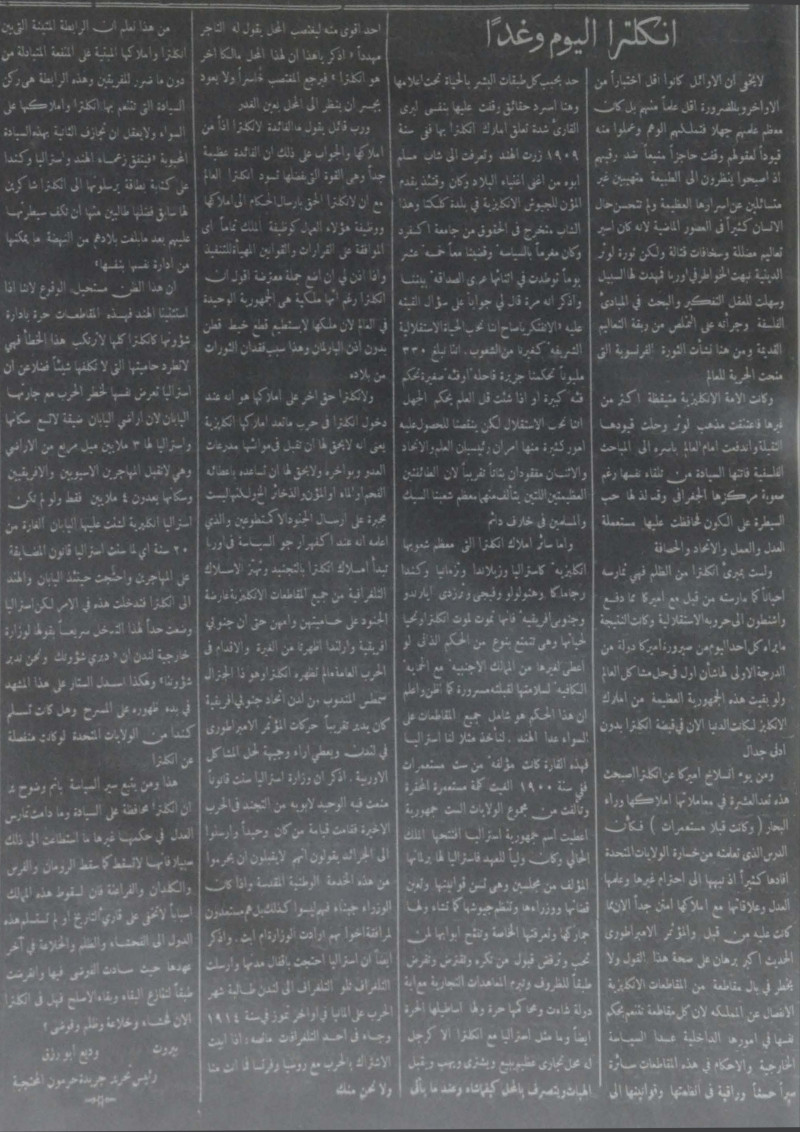 انكلترا اليوم وغدًا
لا يخفى ان الاوائل كانوا اقل اختباراً من
الاواخر وبالضرورة اقل علماً منهم بل كان
معظم علمهم جهلا فتملكهم الوهم وعملوا منه
قيوداً لعقولهم وقفت حاجزاً منيعاً ضد رقيهم
اذ اصبحوا ينظرون الى الطبيعة متهيبين غير
متسائلين عن اسرارها العظيمة ولم تتحسن حال
الانسان كثيراً في العصور الماضية لانه كان اسير
تعاليم مضللة وسخافات قتالة ولكن ثورة لوثر
الدينية نبهت الخواطر في اوربا فمهدت لها السبيل
وسهلت للعقل التفكير والبحث في المبادئ
الفلسفة وجرأته على التخلص من ربقة التعاليم
القديمة ومن هنا نشأت الثورة الفرنسوية التي
منحت الحرية للعالم
وكانت الامة الانكليزية متيقظة اكثر من
غيرها فاعتنقت مذهب لوثر وحلت قيودها
الثقيلة واندفعت امام العالم باسره الى المباحث
الفلسفية فاتتها السيادة من تلقاء نفسها رغم
صعوبة مركزها الجغرافي وقد لذ لها حب
السيطرة على الكون فحافظت عليها مستعملة
العدل والعمل والاتحاد والحصافة
ولست بمبرئ انكلترا من الظلم فهي تمارسه
احياناً كما مارسته من قبل مع اميركا مما دفع
واشنطون الى حروبه الاستقلالية وكانت النتيجة
ما يراه كل احد اليوم من صيرورة اميركا دولة من
الدرجة الاولى لها شأن اول في حل مشاكل العالم
ولو بقيت هذه الجمهورية العظيمة من املاك
الانكليز لكانت الدنيا الان في قبضة انكلترا بدون
ادنى جدال
ومن يوم انسلاخ اميركا عن انكلترا اصبحت
هذه تعد العشرة في معاملاتها املاكها وراء
البحار (وكانت قبلا مستعمرات) فكأن
الدرس الذي تعلمته من خسارة الولايات المتحدة
افادها كثيراً اذ نبهها الى احترام غيرها وعلمها
العدل وعلاقاتها مع املاكها امتن جداً الان مما
كانت عليه من قبل والمؤتمر الامبراطوري
الحديث اكبر برهان على صحة هذا القول ولا
يخطر في بال مقاطعة من المقاطعات الانكليزية
الانفصال عن المملكة لان كل مقاطعة تتمتع بحكم
نفسها في امورها الداخلية عدا السياسة
الخارجية والاحكام في هذه المقاطعات سائرة
سيراً حسناً وراقية في انظمتها وقوانينها الى
حد يحبب كل طبقات البشر بالحياة تحت اعلامها
وهنا اسرد حقائق وقفت عليها بنفسي ليرى
القارئ شدة تعلق املاك انكلترا بها ففي سنة
١٩٠٩ زرت الهند وتعرفت الى شاب مسلم
ابوه من اغنى اغنياء البلاد وكان وقتئذ يقدم
المؤن للجيوش الانكليزية في بلدة كلكتا وهذا
الشاب متخرج في الحقوق من جامعة اكسفرد
وكان مغرماً بالسياسة وقضينا معاً خمسة عشر
يوماً توطدت في اثنائها عرى الصداقة بيننا
واذكر انه مرة قال لي جواباً على سؤال القيته
عليه «لاتفتكر ياصاح اننا نحب الحياة الاستقلالية
الشريفة كغيرنا من الشعوب. اننا نبلغ ٣٣٠
مليوناً تحكمنا جزيرة قاحلة او فئة صغيرة تحكم
فئة كبيرة او اذا شئت قل العلم يحكم الجهل
اننا نحب الاستقلال لكن ينقصنا للحصول عليه
امور كثيرة منها امران رئيسيان العلم والاتحاد
والاثنان مفقودان بتاتاً تقريباً لان الطائفتين
العظيمتين اللتين يتألف منهما معظم شعبنا السيك
والمسلمين في خلاف دائم
واما سائر املاك انكلترا التي معظم شعوبها
انكليزية كاستراليا وزيلاندا وتزمانيا وكندا
وجاماكا وهنولولو وفيجي وثرزدي ايلاندو
وجنوبي افريقية فانها تموت لموت انكلترا وتحيا
لحياتها وهي تتمتع بنوع من الحكم الذاتي لو
اعطي لغيرها من الممالك الاجنبية مع الحماية
الكافية لسلامتها لقبلته مسرورة كما اظن واعلم
ان هذا الحكم هو شامل جميع المقاطعات على
السواء عدا الهند. لنأخذ مثلا لنا استراليا
فهذه القارة كانت مؤلفة من ست مستعمرات
ففي سنة ١٩٠٠ الغيت كلمة مستعمرة المحقرة
وتألفت من مجموع الولايات الست جمهورية
اعطيت اسم جمهورية استراليا افتتحها الملك
الحالي وكان ولياً للعهد فاستراليا لها برلمانها
المؤلف من مجلسين وهي تسن قوانينها وتعين
قضاتها ووزراءها وتنظم جيوشها كما تشاء ولها
جماركها وتعرفتها الخاصة وتفتح ابوابها لمن
تحب وترفض قبول من تكره وتقترض وتقرض
طبقاً للظروف وتبرم المعاهدات التجارية مع اية
دولة شاءت ومحاكمها حرة ولها اساطيلها الحرة
ايضاً وما مثل استراليا مع انكلترا الا كرجل
له محل تجاري عظيم يبيع ويشتري ويهب ويقبل
الهبات ويتصرف بالمحل كيفما شاء وعند ما يأتي
احد اقوى منه ليغتصب المحل يقول له التاجر
مهدداً «اذكر ياهذا ان لهذا المحل مالكا آخر
هو انكلترا» فيرجع المغتصب خاسراً ولا يعود
يجسر ان ينظر الى المحل بعين الغدر
ورب قائل يقول ما الفائدة لانكلترا اذاً من
املاكها والجواب على ذلك ان الفائدة عظيمة
جداً وهي القوة التي بفضلها تسود انكلترا العالم
مع ان لانكلترا الحق بارسال الحكام الى املاكها
ووظيفة هؤلاء العمال كوظيفة الملك تماماً اي
الموافقة على القرارات والقوانين المهيأة للتنفيذ
واذا اذن لي ان اضع جملة معترضة اقول ان
انكلترا رغم انها ملكية هي الجمهورية الوحيدة
في العالم لان ملكها لا يستطيع قطع خيط قطن
بدون اذن البارلمان وهذا سبب فقدان الثورات
من بلاده
ولانكلترا حق اخر على املاكها هو انه عند
دخول انكلترا في حرب ما تعد املاكها انكليزية
يعني انه لا يحق لها ان تقبل في موانئها مدرعات
العدو وبواخره ولا يحق لها ان تساعده باعطائه
الفحم او الماء او المؤن والذخائر الخ ولكنها ليست
مجبرة على ارسال الجنود الا كمتطوعين والذي
اعلمه انه عند اكفهرار جو السياسة في اوربا
تبدأ املاك انكلترا بالتجنيد وتهتز الاسلاك
التلغرافية من جميع المقاطعات الانكليزية عارضة
الجنود على حساب‍هن وامهن حتى ان جنوبي
افريقية وارلندا اظهرتا من الغيرة والاقدام في
الحرب العامة ما لم تظهره انكلترا وهو ذا الجنرال
سمطس المندوب من لدن اتحاد جنوبي افريقية
كان يدير تقريباً حركات المؤتمر الامبراطوري
في لندن ويعطي اراء وجيهة لحل المشاكل
الاوربية. اذكر ان وزارة استراليا سنت قانوناً
منعت فيه الوحيد لابويه من التجند في الحرب
الاخيرة فقامت قيامة من كان وحيداً وارسلوا
الى الجرائد يقولون انهم لايقبلون ان يحرموا
من هذه الخدمة الوطنية المقدسة واذا كان
الوزراء جبناء فهم ليسوا كذلك بل هم مستعدون
لمرافقة اخوانهم ارادت الوزارة ام ابت. واذكر
ايضاً ان استراليا احتجت باقفال مدنها وارسلت
التلغراف تلو التلغراف الى لندن طالبة شهر
الحرب على المانيا في اواخر تموز في سنة ١٩١٤
وجاء في احد التلغرافات مانصه: اذا ابيت
الاشتراك بالحرب مع روسيا وفرنسا فما انت منا
ولا نحن منك
من هذا نعلم ان الرابطة المتينة التي بين
انكلترا واملاكها المبنية على المنفعة المتبادلة من
دون ما ضرر للفريقين وهذه الرابطة هي ركن
السيادة التي تتنعم بها انكلترا واملاكها على
السواء ولا يعقل ان تجازف الثانية بهذه السيادة
المحبوبة «فيتفق زعماء الهند واستراليا وكندا
على كتابة بطاقة يرسلونها الى انكلترا شاكرين
لها سابق فضلها طالبين منها ان تكف سيطرتها
عليهم بعد ما بلغت بلادهم من النهضة ما يمكنها
من ادارة نفسها بنفسها»
ان هذا الظن مستحيل الوقوع لاننا اذا
استثنينا الهند فهذه المقاطعات حرة بادارة
شؤونها كانكلترا كلها لا ترتكب هذا الخطأ فهي
لا تطرد حاميتها التي لا تكلفها شيئاً فضلا عن ان
استراليا تعرض نفسها لخطر الحرب مع جارتها
اليابان لان اراضي اليابان ضيقة لا تسع سكانها
واستراليا لها ٣ ملايين ميل مربع من الاراضي
وهي لا تقبل المهاجرين الاسيويين والافريقيين
وسكانها يعدون ٤ ملايين فقط ولو لم تكن
استراليا انكليزية لشنت عليها اليابان الغارة من
٢٠ سنة اي لما سنت استراليا قانون المضايقة
على المهاجرين واحتجت حينئذ اليابان والهند
الى انكلترا فتدخلت هذه في الامر لكن استراليا
وضعت حداً لهذا التدخل سريعاً بقولها لوزارة
خارجية لندن ان «ديري شؤونك ونحن ندير
شؤوننا» وهكذا اسدل الستار على هذا المشهد
في بدء ظهوره على المسرح وهل كانت تسلم
كندا من الولايات المتحدة لو كانت منفصلة
عن انكلترا
هذا ومن يتبع سير السياسة يأتم وضوح ير
ان انكلترا محافظة على السيادة وما دامت تمارس
العدل في حكمها غيرها ما استطاعت الى ذلك
سبيلا فانها لا تسقط كما سقط الرومان والفرس
والكلدان والفراعنة فان لسقوط هذه الممالك
اسباباً لا تخفى على قارئ التاريخ او لم تستسلم هذه
الدول الى الفحشاء والظلم والخلاعة في آخر
عهدها حيث سادت الفوضى فيها وانقرضت
طبقاً لتنازع البقاء وبقاء الاصلح فهل في انكلترا
الان فحشاء وخلاعة وظلم وفوضى؟
بيروت وديع ابو رزق
رئيس تحرير جريدة حرمون المحتجبة